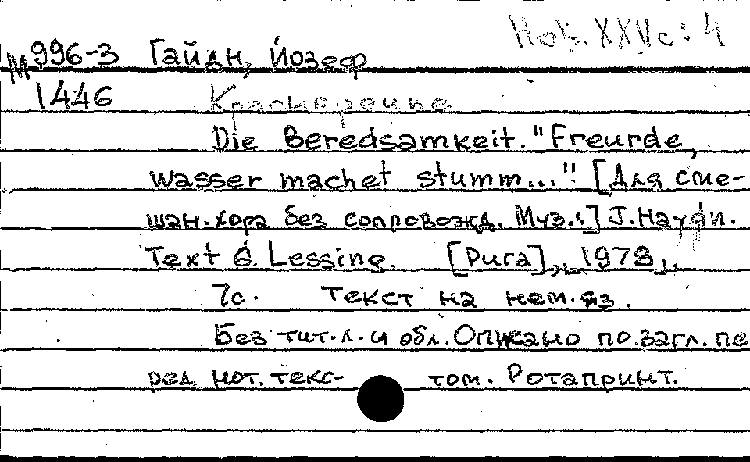 Нот. XXVс:4
М 996-3 Гайдн, Йозеф
1446 Красноречие
Die Beredsamkeit. "Freunde,
wasser machet stumm..." [Для сме-
шан. хора без сопровожд. Муз.:] J. Haydn.
Text G. Lessing. [Рига], 1978,.
7с. Текст на нем. яз.
Без тит. л. и обл. Описано по загл. пе
ред нот. текс- том. Ротапринт.